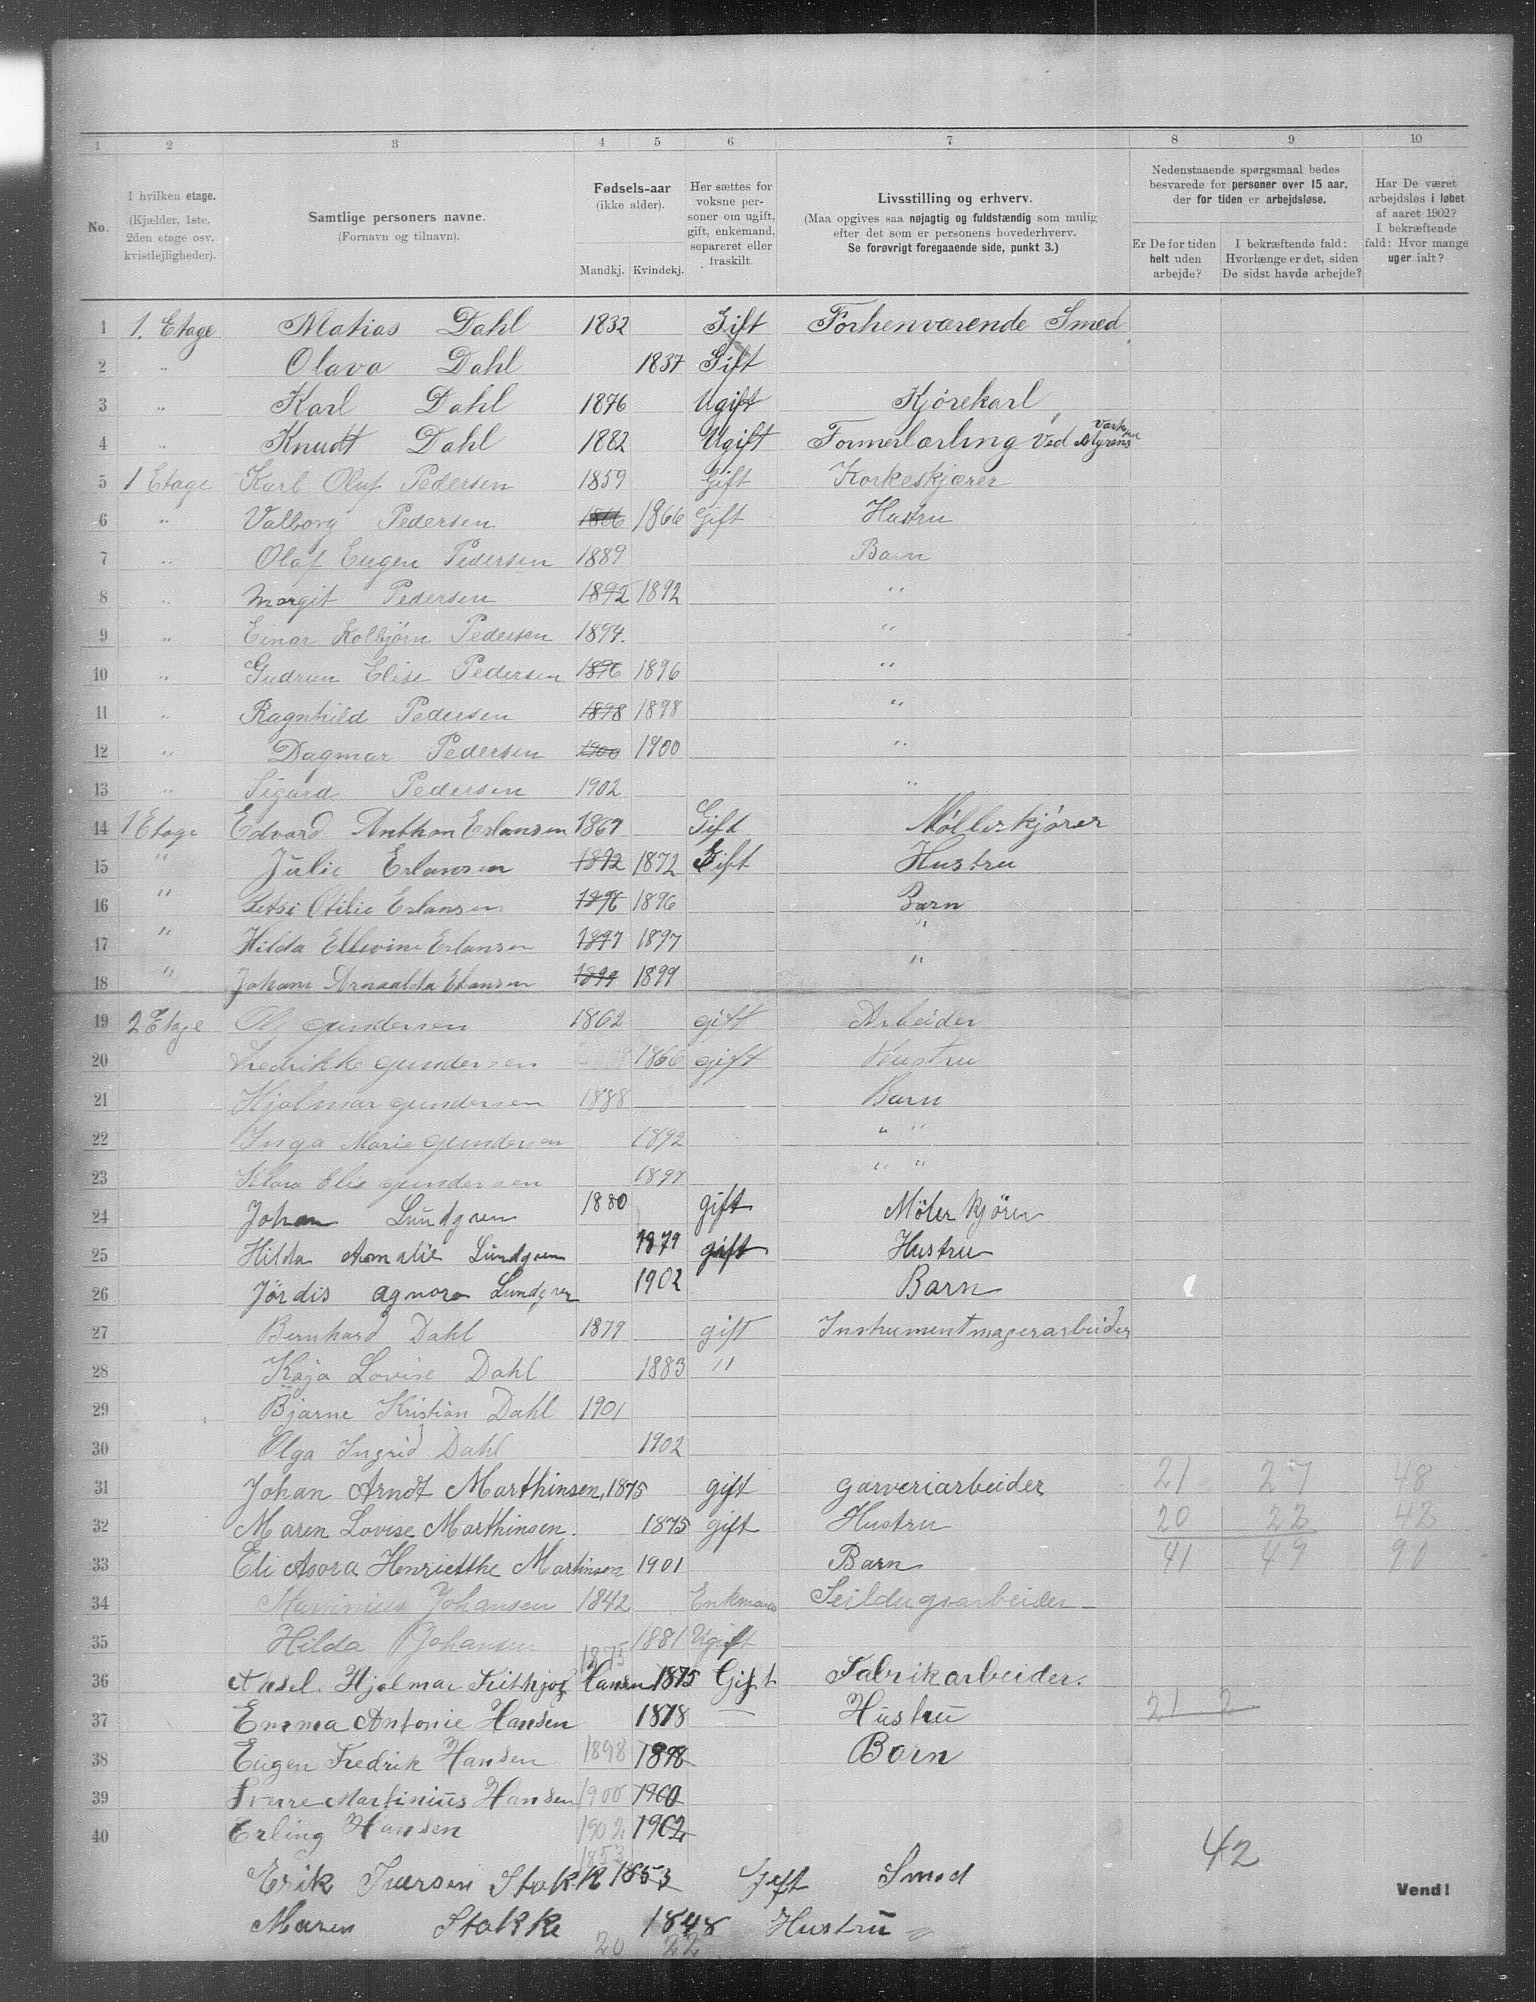 1 2 3 4 5 6 7 8 9 10
No.
I hvilken etage.
(Kjælder, 1ste,
2den etage osv.
kvistlejligheder).
Samtlige personers navne.
(Fornavn og tilnavn).
Fødsels-aar
(ikke alder).
Mandkj. Kvindekj.
Her sættes for
voksne per-
soner om ugift,
gift, enkemand,
separeret eller
fraskilt.
Livsstilling og erhverv.
(Maa opgives saa nøjagtig og fuldstændig som mulig
efter det som er personens hovederhverv.
Se forøvrigt foregaaende side, punkt 3.)
Nedenstaaende spørgsmaal bedes
besvarede for personer over 15 aar,
der for tiden er arbejdsløse.
Er De for tiden
helt uden
arbejde?
I bekræftende fald:
Hvorlænge er det, siden
De sidst havde arbejde?
Har De været
arbejdsløs i løbet
af aaret 1902?
I bekræftende
fald: Hvor mange
uger ialt?
1 1. Etage Matias Dahl 1832 Gift Forhenværende Smed
2 " Olava Dahl 1837 Gift
3 " Karl Dahl 1876 Ugift Kjørekarl
4 " Knudt Dahl 1882 Ugift Formerlærling ved Myrens
5 1 Etage Karl Oluf Pedersen 1859 Gift Korkeskjærer
6 " Valborg Pedersen 1866 1866 Gift Hustru
7 " Olaf Eugen Pedersen 1889 Barn
8 " Margit Pedersen 1892 1892 "
9 " Einar Kolbjørn Pedersen 1894. "
10 " Gudrun Elise Pedersen 1896 1896 "
11 " Ragnhild Pedersen 1898 1898 "
12 " Dagmar Pedersen 1900 1900 "
13 " Sigurd Pedersen 1902 "
14 1 Etage Edvard Anthon Erlansen 1867 Gift Møllerkjører
15 " Julie Erlansen 1872 1872 Gift Hustru
16 " Betsi Otilie Erlansen 1896 1896 Barn
17 " Hilda Ellevine Erlansen 1897 1897 "
18 " Johane Arnaalda Elansen 1899 1899 "
19 2 Etage Ole gundersen 1862 gift Arbeider
20 Fredrikke gundersen 1866 gift Hustru
21 Hjalmar gundersen 1888 Barn
22 Inga Marie gundersen 1892 " "
23 Klara Elise gundersen 1897 " "
24 Johan Lundgren 1880 gift Møler kjörer
25 Hilda Amalie Lundgren 1879 gift Hustru
26 Jördis agnora Lundgren 1902 Barn
27 Bernhard Dahl 1879 gift Instrumentmagerarbeider
28 Kaja Lovise Dahl 1883 "
29 Bjarne Kristian Dahl 1901
30 Olga Ingrid Dahl 1902
31 Johan Arndt Marthinsen, 1875 gift garveriarbeider 21 27 48
32 Maren Lovise Marthinsen. 1875 gift Hustru 20 22 42
33 Eli Asora Henriethe Martinsen 1901 Barn 41 49 90
34 Marinius Johansen 1842 Enkmand Seildugsarbeider
35 Hilda Johansen 1881 Ugift
36 Aksel. Hjalmar Frithjof Hansen 1875 1875 Gift Fabrikarbeider.
37 Emma Antonie Hansen 1878 Hustru 21 2
38 Eugen Fredrik Hansen 1898 1898 Barn
39 Sverre Martinius Hansen 1900 1900
40 Erling Hansen 1902 1902
42
Erik Iversen Stokk 1853 1853 Gift Smed
Vend!
Maren Stokke 1848 Hustru "
20 22